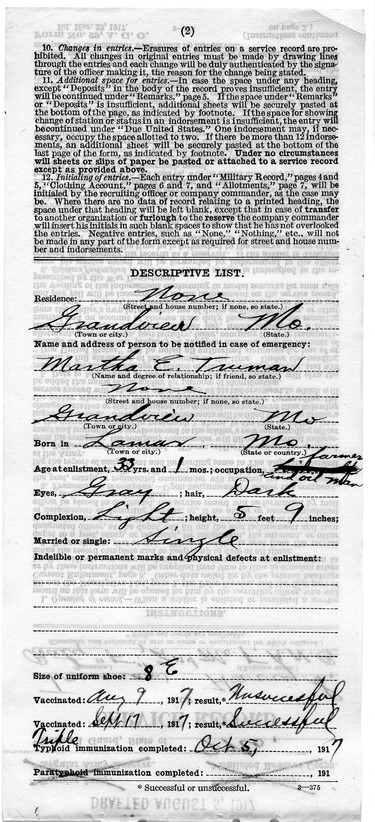 (2)
10. Changes in entries.—Erasures of entries on a service record are pro-
hibited. All changes in original entries must be made by drawing lines
through the entries and each change will be duly authenticated by the signa-
ture of the officer making it, the reason for the change being stated.
11. Additional space for entries.—In case the space under any heading,
except "Deposits" in the body of the record proves insufficient, the entry
will be continued under "Remarks," page 5. If the space under "Remarks"
or "Deposits" is insufficient, additional sheets will be securely pasted at
the bottom of the page, as indicated by footnote. If the space for showing
change of station or status in an indorsement is insufficient, the entry will
be continued under "Due United States." One indorsement may, if nec-
essary, occupy the space allotted to two. If there be more than 12 indorse-
ments, an additional sheet will be securely pasted at the bottom of the
last page of the form, as indicated by footnote. Under no circumstances
will sheets or slips of paper be pasted or attached to a service record
except as provided above.
12. Initialing of entries.—Each entry under "Military Record," pages 4 and
5, "Clothing Account," pages 6 and 7, and "Allotments," page 7, will be
initialed by the recruiting officer or company commander, as the case may
be. Where there are no data of record relating to a printed heading, the
space under that heading will be left blank, except that in case of transfer
to another organization or furlough to the reserve the company commander
will insert his initials in such blank spaces to show that he has not overlooked
the entries. Negative entries, such as "None," "Nothing," etc., will not
be made in any part of the form except as required for street and house num-
ber and indorsements.
DESCRIPTIVE LIST.
Residence: None
(Street and house number; if none, so state.)
Grandview Mo.
(Town or city.) (State.)
Name and address of person to be notified in case of emergency:
Martha E. Truman
(Name and degree of relationship; if friend, so state.)
None
(Street and house number; if none, so state.)
Grandview Mo
(Town or city.) (State.)
Born in Lamar Mo.
(Town or city.) (State or country.)
Age at enlistment, 33 yrs. and 1 mos.; occupation, farmer
and oil man
Eyes, Gray; hair, Dark
Complexion, Light; height, 5 feet 9 inches;
Married or single: Single
Indelible or permanent marks and physical defects at enlistment:
Size of uniform shoe: 8 E
Vaccinated: Aug 9, 1917; result,* Unsuccessful
Vaccinated: Sept 17, 1917; result,* Successful
Triple
Typhoid immunization completed: Oct 5, 1917
Paratyphoid immunization completed: , 191
* Successful or unsuccessful. 3—375
DRAFTED AUGUST 5, 1917